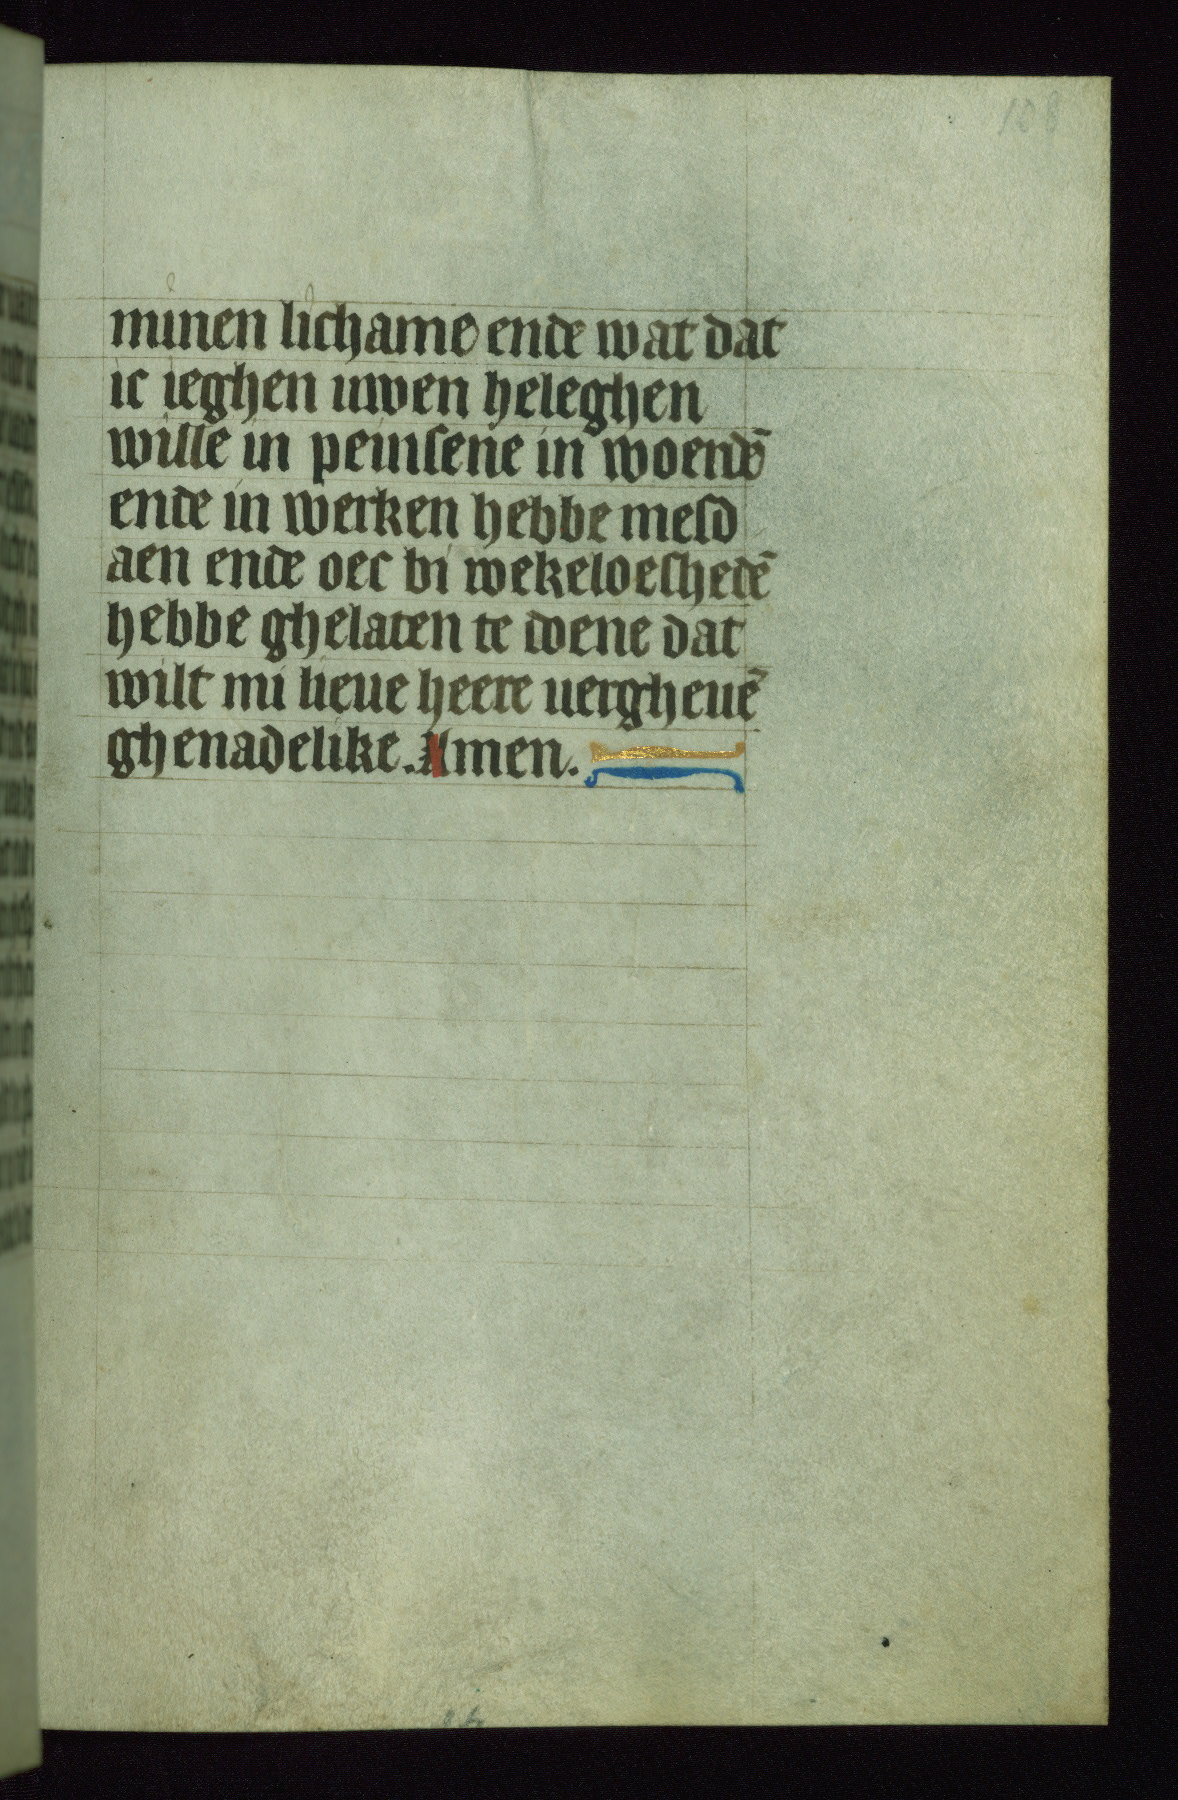 108
minen lichame ende wat dat
ic ieghen uwen heleghen
wille in peinsene in woerdē
ende in werken hebbe mesd
aen ende oec bi wekeloeshedē
hebbe ghelaten te doene dat
wilt mi lieue heere uergheuē
ghenadelike. Amen.